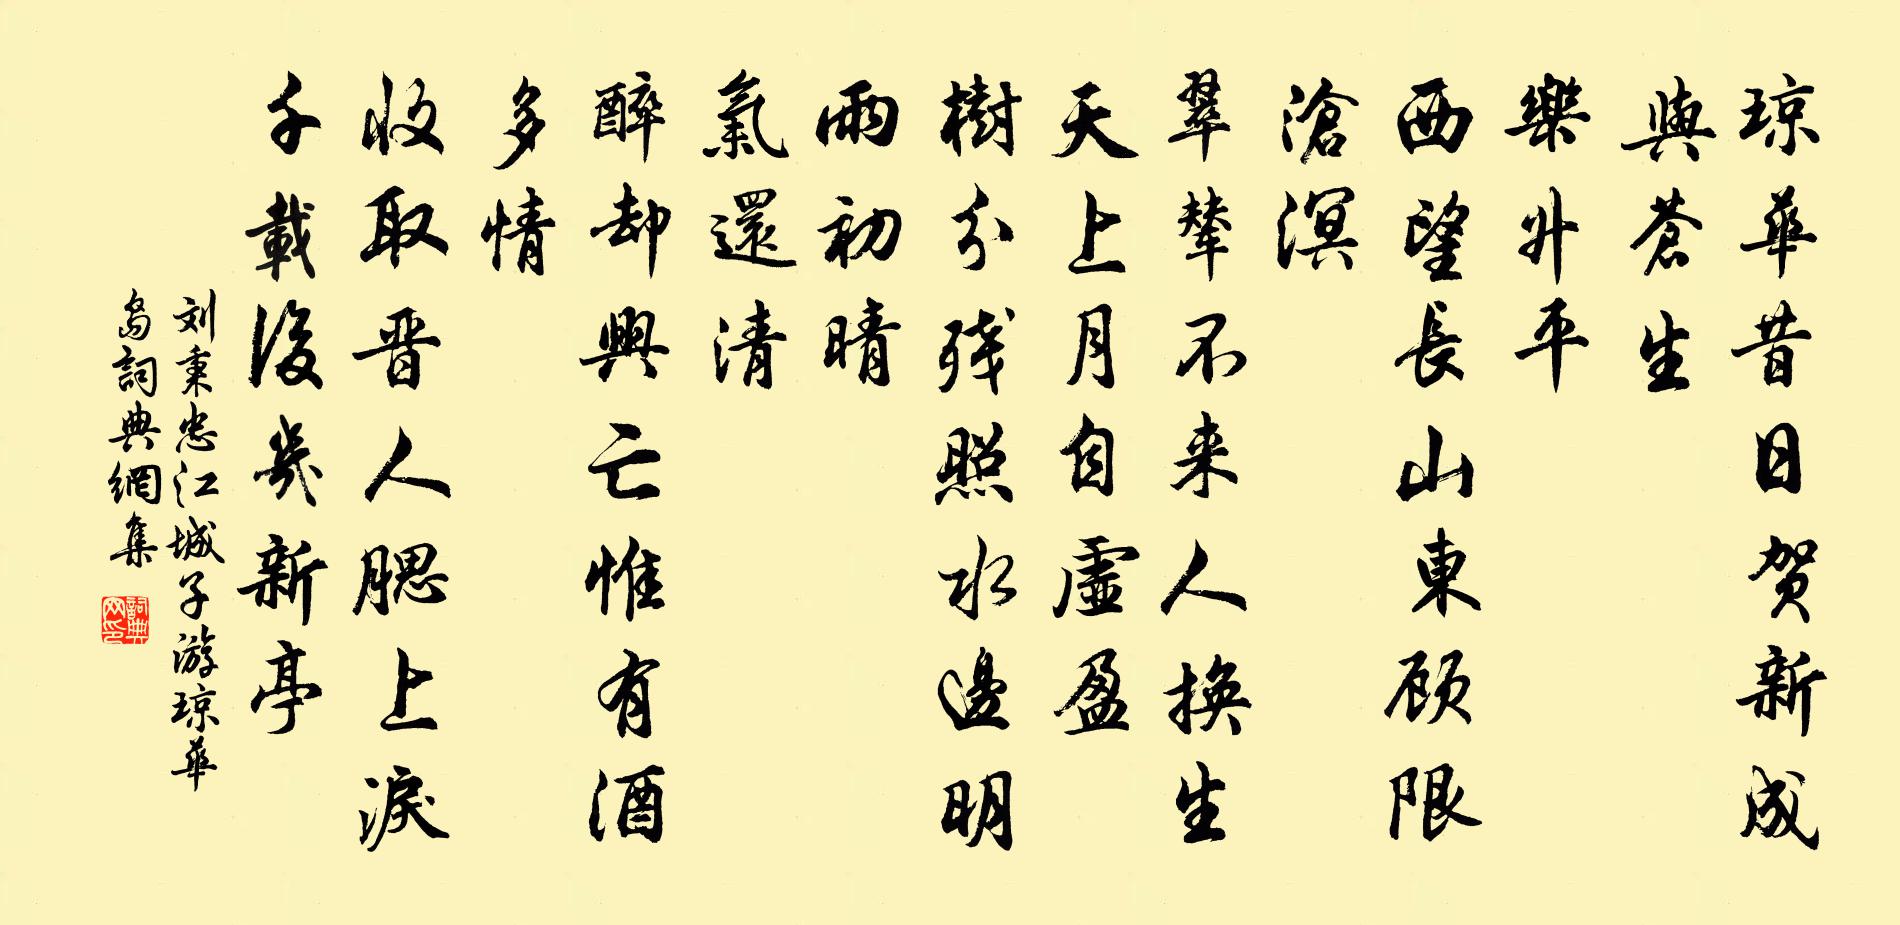 琼華昔日贺新成
與蒼生
樂升平
西望長山東顾限
滄溟
翠輦不来人换生
天上月自虛盈
樹分残照水邊明
雨初晴
氣還清
醉却興亡惟有酒
多情
收取晋人腮上淚
千載後幾新亭
刘秉忠江城子游琼華
島詞典網集
詞典网印